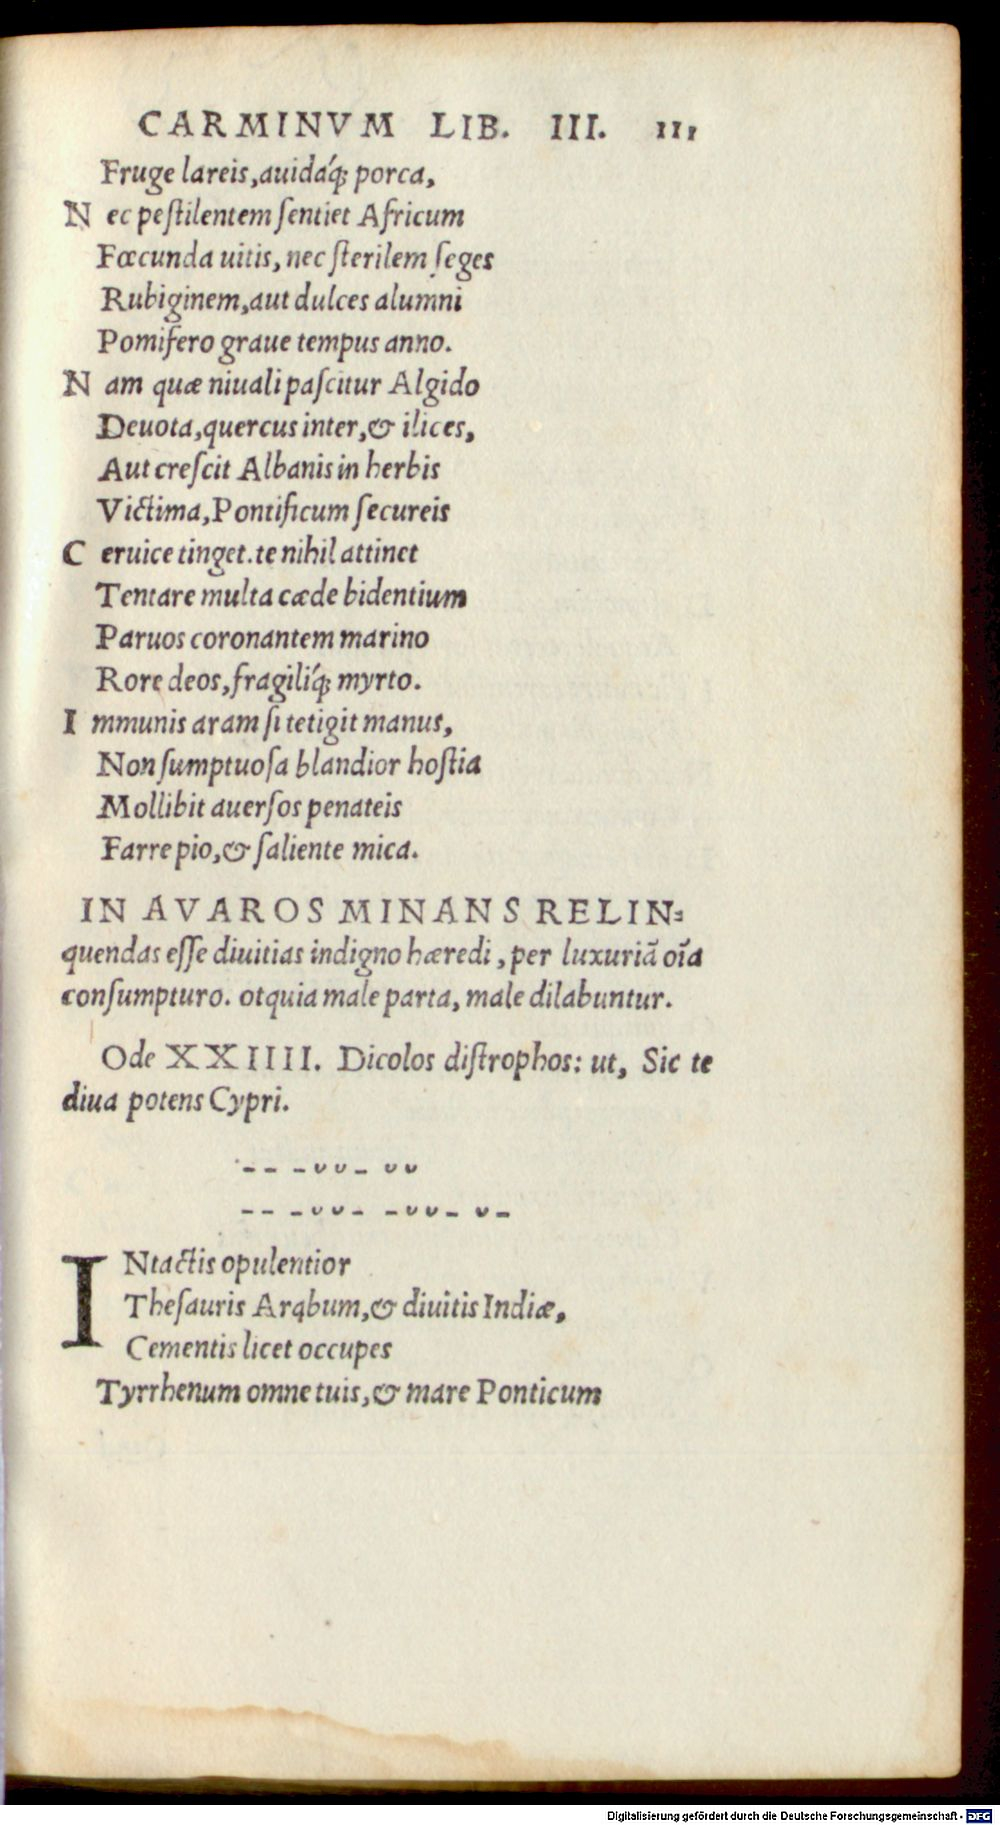 CARMINVM LIB. III. 111
Fruge lareis, auidáq; porca,
N ec pestilentem sentiet Africum
Fœcunda uitis, nec sterilem seges
Rubiginem, aut dulces alumni
Pomifero graue tempus anno.
N am quæ niuali pascitur Algido
Deuota, quercus inter, & ilices,
Aut crescit Albanis in herbis
Victima, Pontificum secureis
C eruice tinget. te nihil attinet
Tentare multa cæde bidentium
Paruos coronantem marino
Rore deos, fragilíq; myrto.
I mmunis aram si tetigit manus,
Non sumptuosa blandior hostia
Mollibit auersos penateis
Farre pio, & saliente mica.
IN AVAROS MINANS RELIN=
quendas esse diuitias indigno hæredi, per luxuriā oĩa
consumpturo. otquia male parta, male dilabuntur.
Ode XXIIII. Dicolos distrophos: ut, Sic te
diua potens Cypri.
-- -υυ- υυ
-- -υυ- -υυ- υ-
INtactis opulentior
Thesauris Arabum, & diuitis Indiæ,
Cementis licet occupes
Tyrrhenum omne tuis, & mare Ponticum
Digitalisierung gefördert durch die Deutsche Forschungsgemeinschaft - DFG